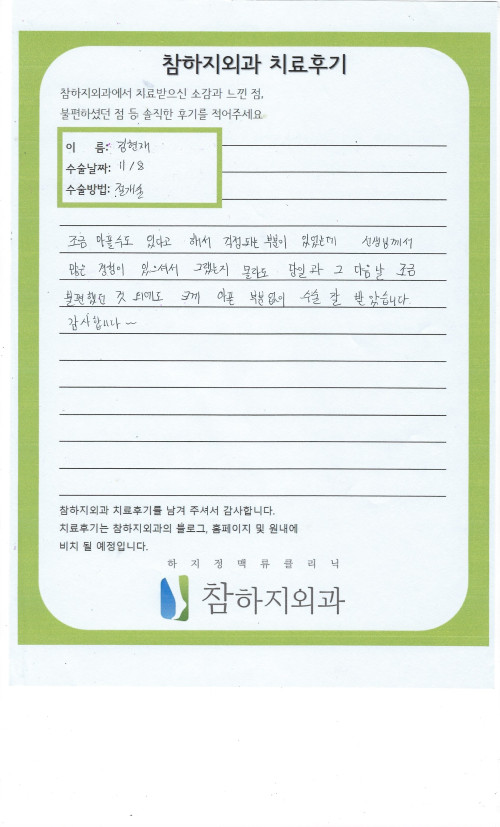 참하지외과 치료후기
참하지외과에서 치료받으신 소감과 느낀 점,
불편하셨던 점 등 솔직한 후기를 적어주세요
이 름: 김현재
수술날짜: 11/8
수술방법: 절개술
조금 아플수도 있다고 해서 걱정되는 부분이 있었는데 선생님께서
많은 경험이 있으셔서 그랬는지 몰라도 당일과 그 다음날 조금
불편했던 것 외에도 크게 아픈 부분없이 수술 잘 받았습니다.
감사합니다~
참하지외과 치료후기를 남겨 주셔서 감사합니다.
치료후기는 참하지외과의 블로그, 홈페이지 및 원내에
비치 될 예정입니다.
하지정맥류클리닉
참하지외과